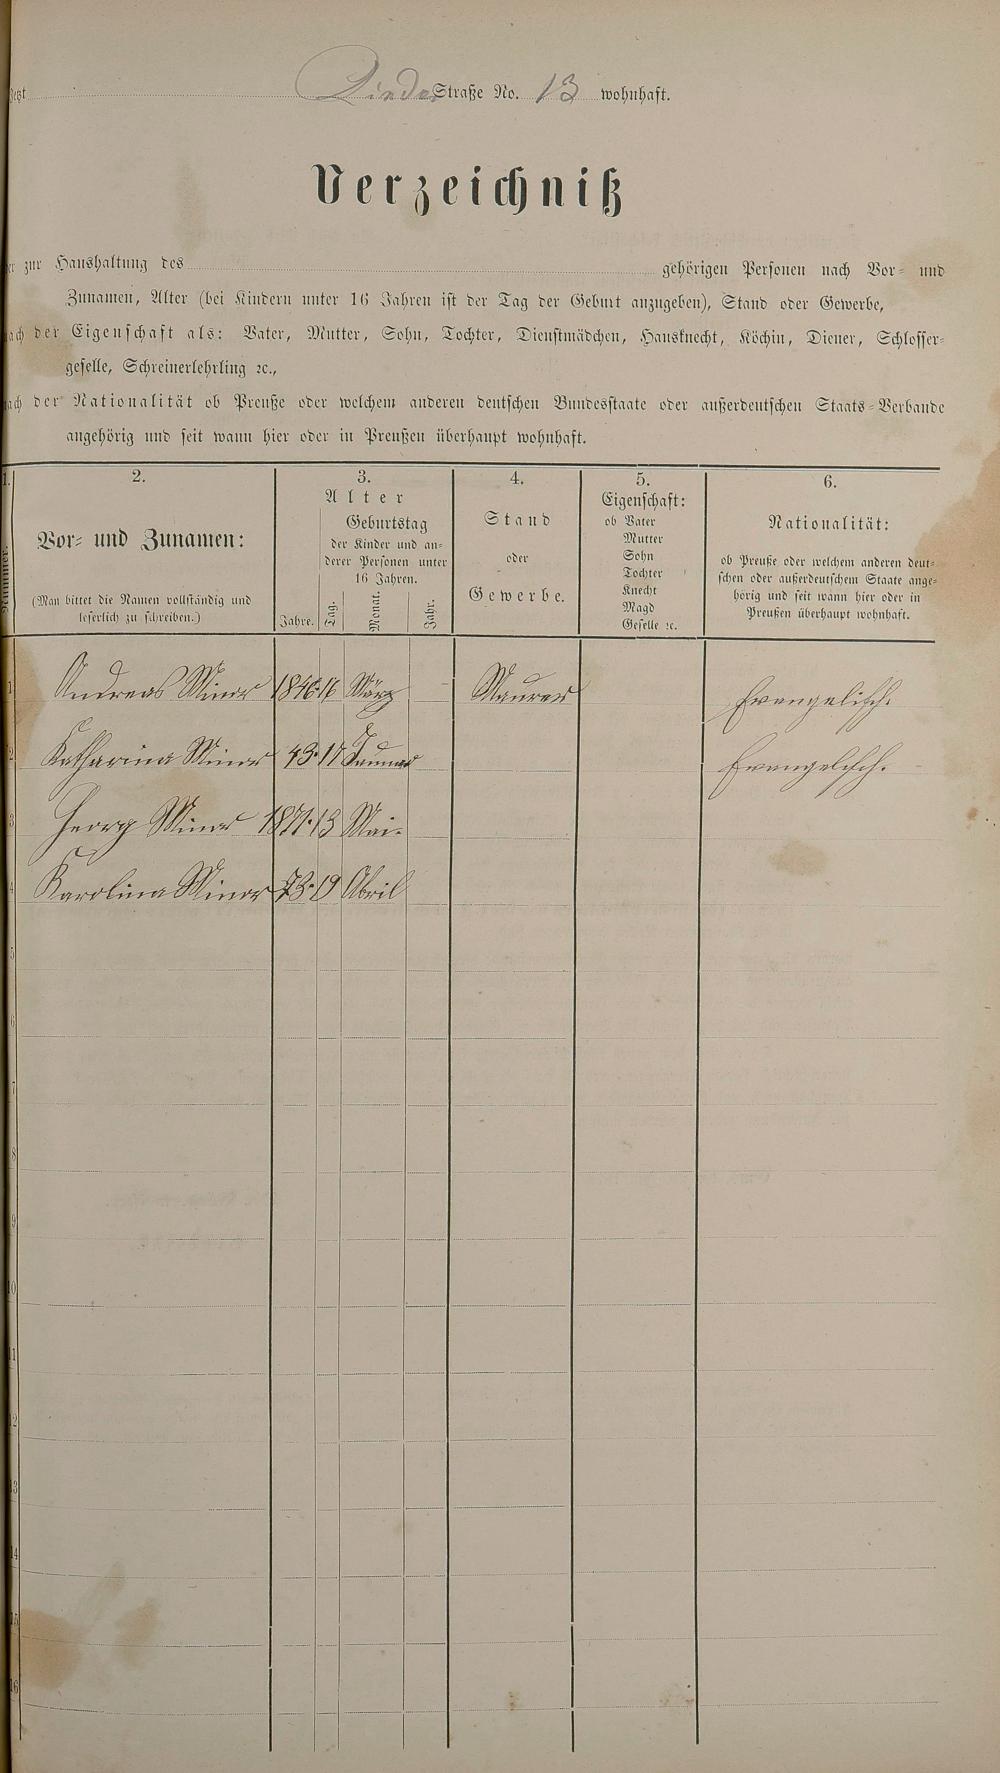 Jetzt Rieder Straße No. 13 wohnhaft.
Verzeichniß
der zur Haushaltung des gehörigen Personen nach Vor- und
Zunamen, Alter (bei Kindern unter 16 Jahren ist der Tag der Geburt anzugeben), Stand oder Gewerbe,
nach der Eigenschaft als: Vater, Mutter, Sohn, Tochter, Dienstmädchen, Hausknecht, Köchin, Diener, Schlosser-
geselle, Schreinerlehrling ꝛc.,
nach der Nationalität ob Preuße oder welchem anderen deutschen Bundesstaate oder außerdeutschen Staats-Verbande
angehörig und seit wann hier oder in Preußen überhaupt wohnhaft.
1.
Nummer.
2.
Vor- und Zunamen:
(Man bittet die Namen vollständig und
leserlich zu schreiben.)
3.
Alter
Jahre.
Geburtstag
der Kinder und an-
derer Personen unter
16 Jahren.
Tag.
Monat.
Jahr.
4.
Stand
oder
Gewerbe.
5.
Eigenschaft:
ob Vater
Mutter
Sohn
Tochter
Knecht
Magd
Geselle ꝛc.
6.
Nationalität:
ob Preuße oder welchem anderen deut-
schen oder außerdeutschem Staate ange-
hörig und seit wann hier oder in
Preußen überhaupt wohnhaft.
1 Andreas Minor 1846 16 März Maurer Evangelisch.
2 Katharina Minor 43 17 Januar Evangelisch.
3 Georg Minor 1871 13 Mai
4 Karolina Minor 73 19 Abril
5
6
7
8
9
10
11
12
13
14
15
16